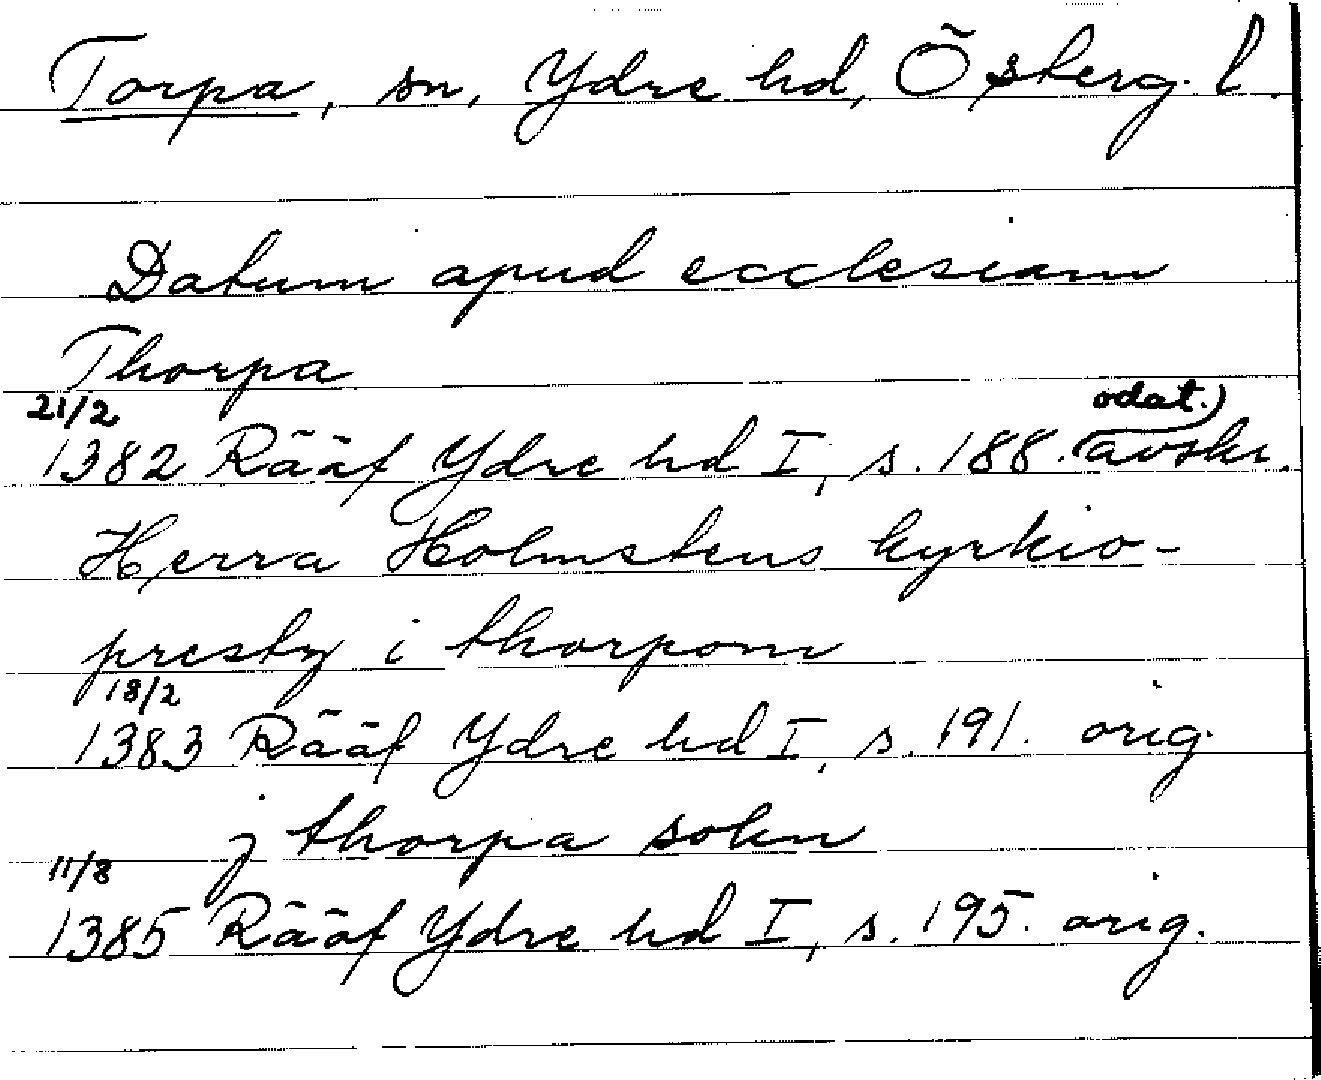 Torpa, sn, Ydre hd, Österg. l.
Datum apud ecclesiam
Thorpa
21/2 odat.)
1382 Rääf Ydre hd I, s. 188. (avskr.
Herra Holmstens kyrkio-
presty i thorpom
18/2
1383 Rääf Ydre hd I, s. 191. orig.
j thorpa sokn
11/8
1385 Rääf Ydre hd I, s. 195. orig.